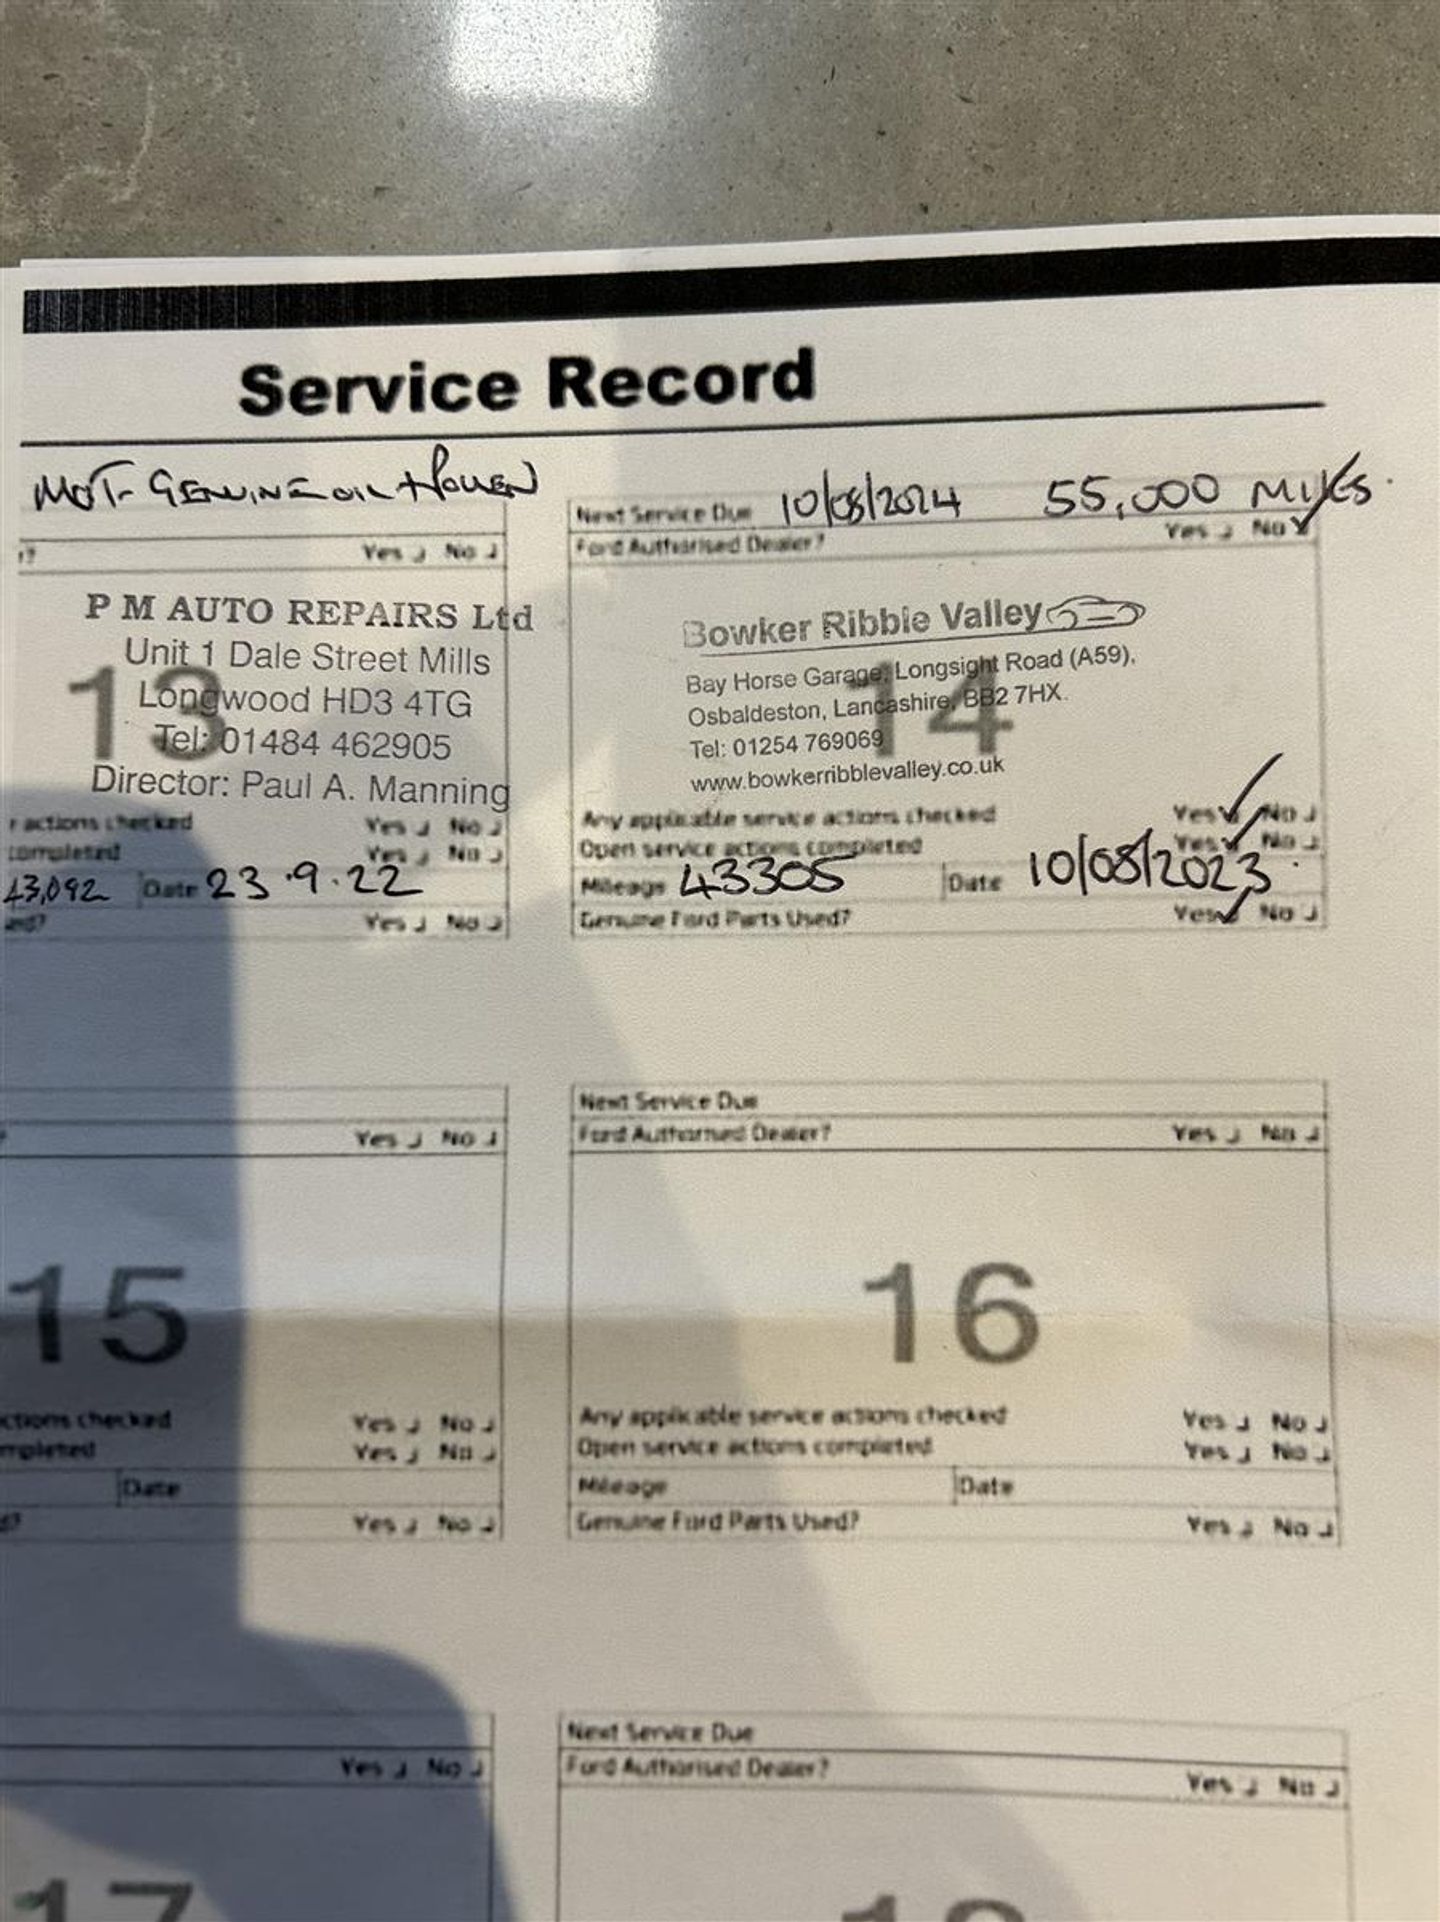 Service Record
MOT- GENUINE OIL +
Yes No
P M AUTO REPAIRS Ltd
Unit 1 Dale Street Mills
Longwood HD3 4TG
Tel: 01484 462905
Director: Paul A. Manning
13
r actions checked Yes No
completed Yes No
43,092 Date 23.9.22
ed? Yes No
Next Service Due 10/08/2024 55,000 MILES.
Ford Authorised Dealer? Yes No ✓
Bowker Ribble Valley
Bay Horse Garage, Longsight Road (A59),
Osbaldeston, Lancashire, BB2 7HX.
Tel: 01254 769069
www.bowkerribblevalley.co.uk
14
Any applicable service actions checked Yes ✓ No
Open service actions completed Yes ✓ No
Mileage 43305 Date 10/08/2023.
Genuine Ford Parts Used? Yes ✓ No
Yes No
15
ctions checked Yes No
mpleted Yes No
Date
d? Yes No
Next Service Due
Ford Authorised Dealer? Yes No
16
Any applicable service actions checked Yes No
Open service actions completed Yes No
Mileage Date
Genuine Ford Parts Used? Yes No
Yes No
17
Next Service Due
Ford Authorised Dealer? Yes No
18